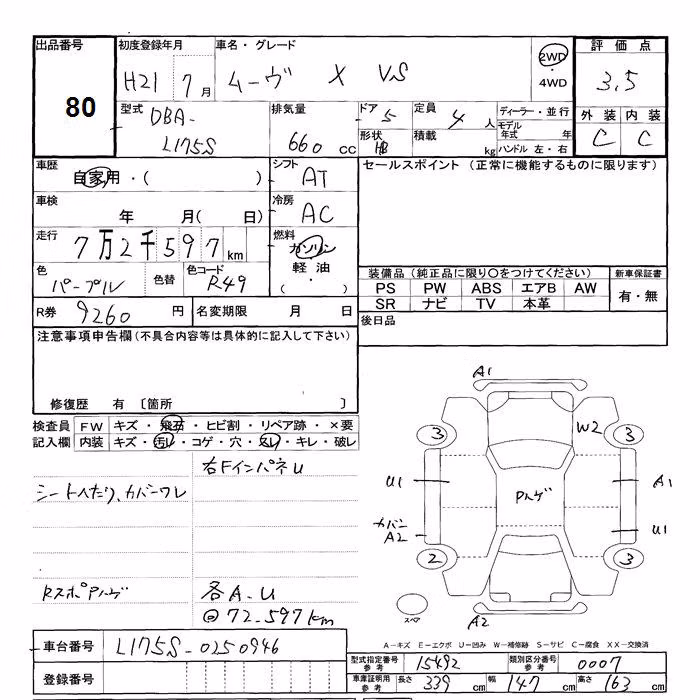 出品番号
80
初度登録年月
H21 7月
車名・グレード
ムーヴ X VS
2WD
・
4WD
評価点
3.5
外装 内装
C C
型式
DBA-
L175S
排気量
660 cc
ドア 5
形状 HB
定員 4人
積載 kg
ディーラー・並行
モデル年式 年
ハンドル 左・右
車歴
自家用・( )
シフト
AT
車検
年 月( 日)
冷房
AC
走行
7万2千597km
燃料
ガソリン
軽油
( ・ )
色
パープル
色替
色コード
R49
R券 9260円
名変期限 月 日
セールスポイント (正常に機能するものに限ります)
装備品(純正品に限り○をつけてください)
PS PW ABS エアB AW
SR ナビ TV 本革
新車保証書
有・無
後日品
注意事項申告欄(不具合内容等は具体的に記入して下さい)
修復歴 有 〔箇所 〕
検査員記入欄
FW キズ・飛石・ヒビ割・リペア跡・×要
内装 キズ・汚レ・コゲ・穴・スレ・キレ・破レ
右Fインパネu
シートヘたり、カバーワレ
RスポAハゲ
各A.u
@72.597km
A1
W2
3 3
U1
A1
Pハゲ
カバン
A2
U1
2 3
スペア
A2
A-キズ E-エクボ U-凹み W-補修跡 S-サビ C-腐食 XX-交換済
車台番号 L175S-0250946
登録番号
型式指定番号 参考 15492
類別区分番号 参考 0007
車庫証明用 参考 長さ 339cm 幅 147cm 高さ 163cm